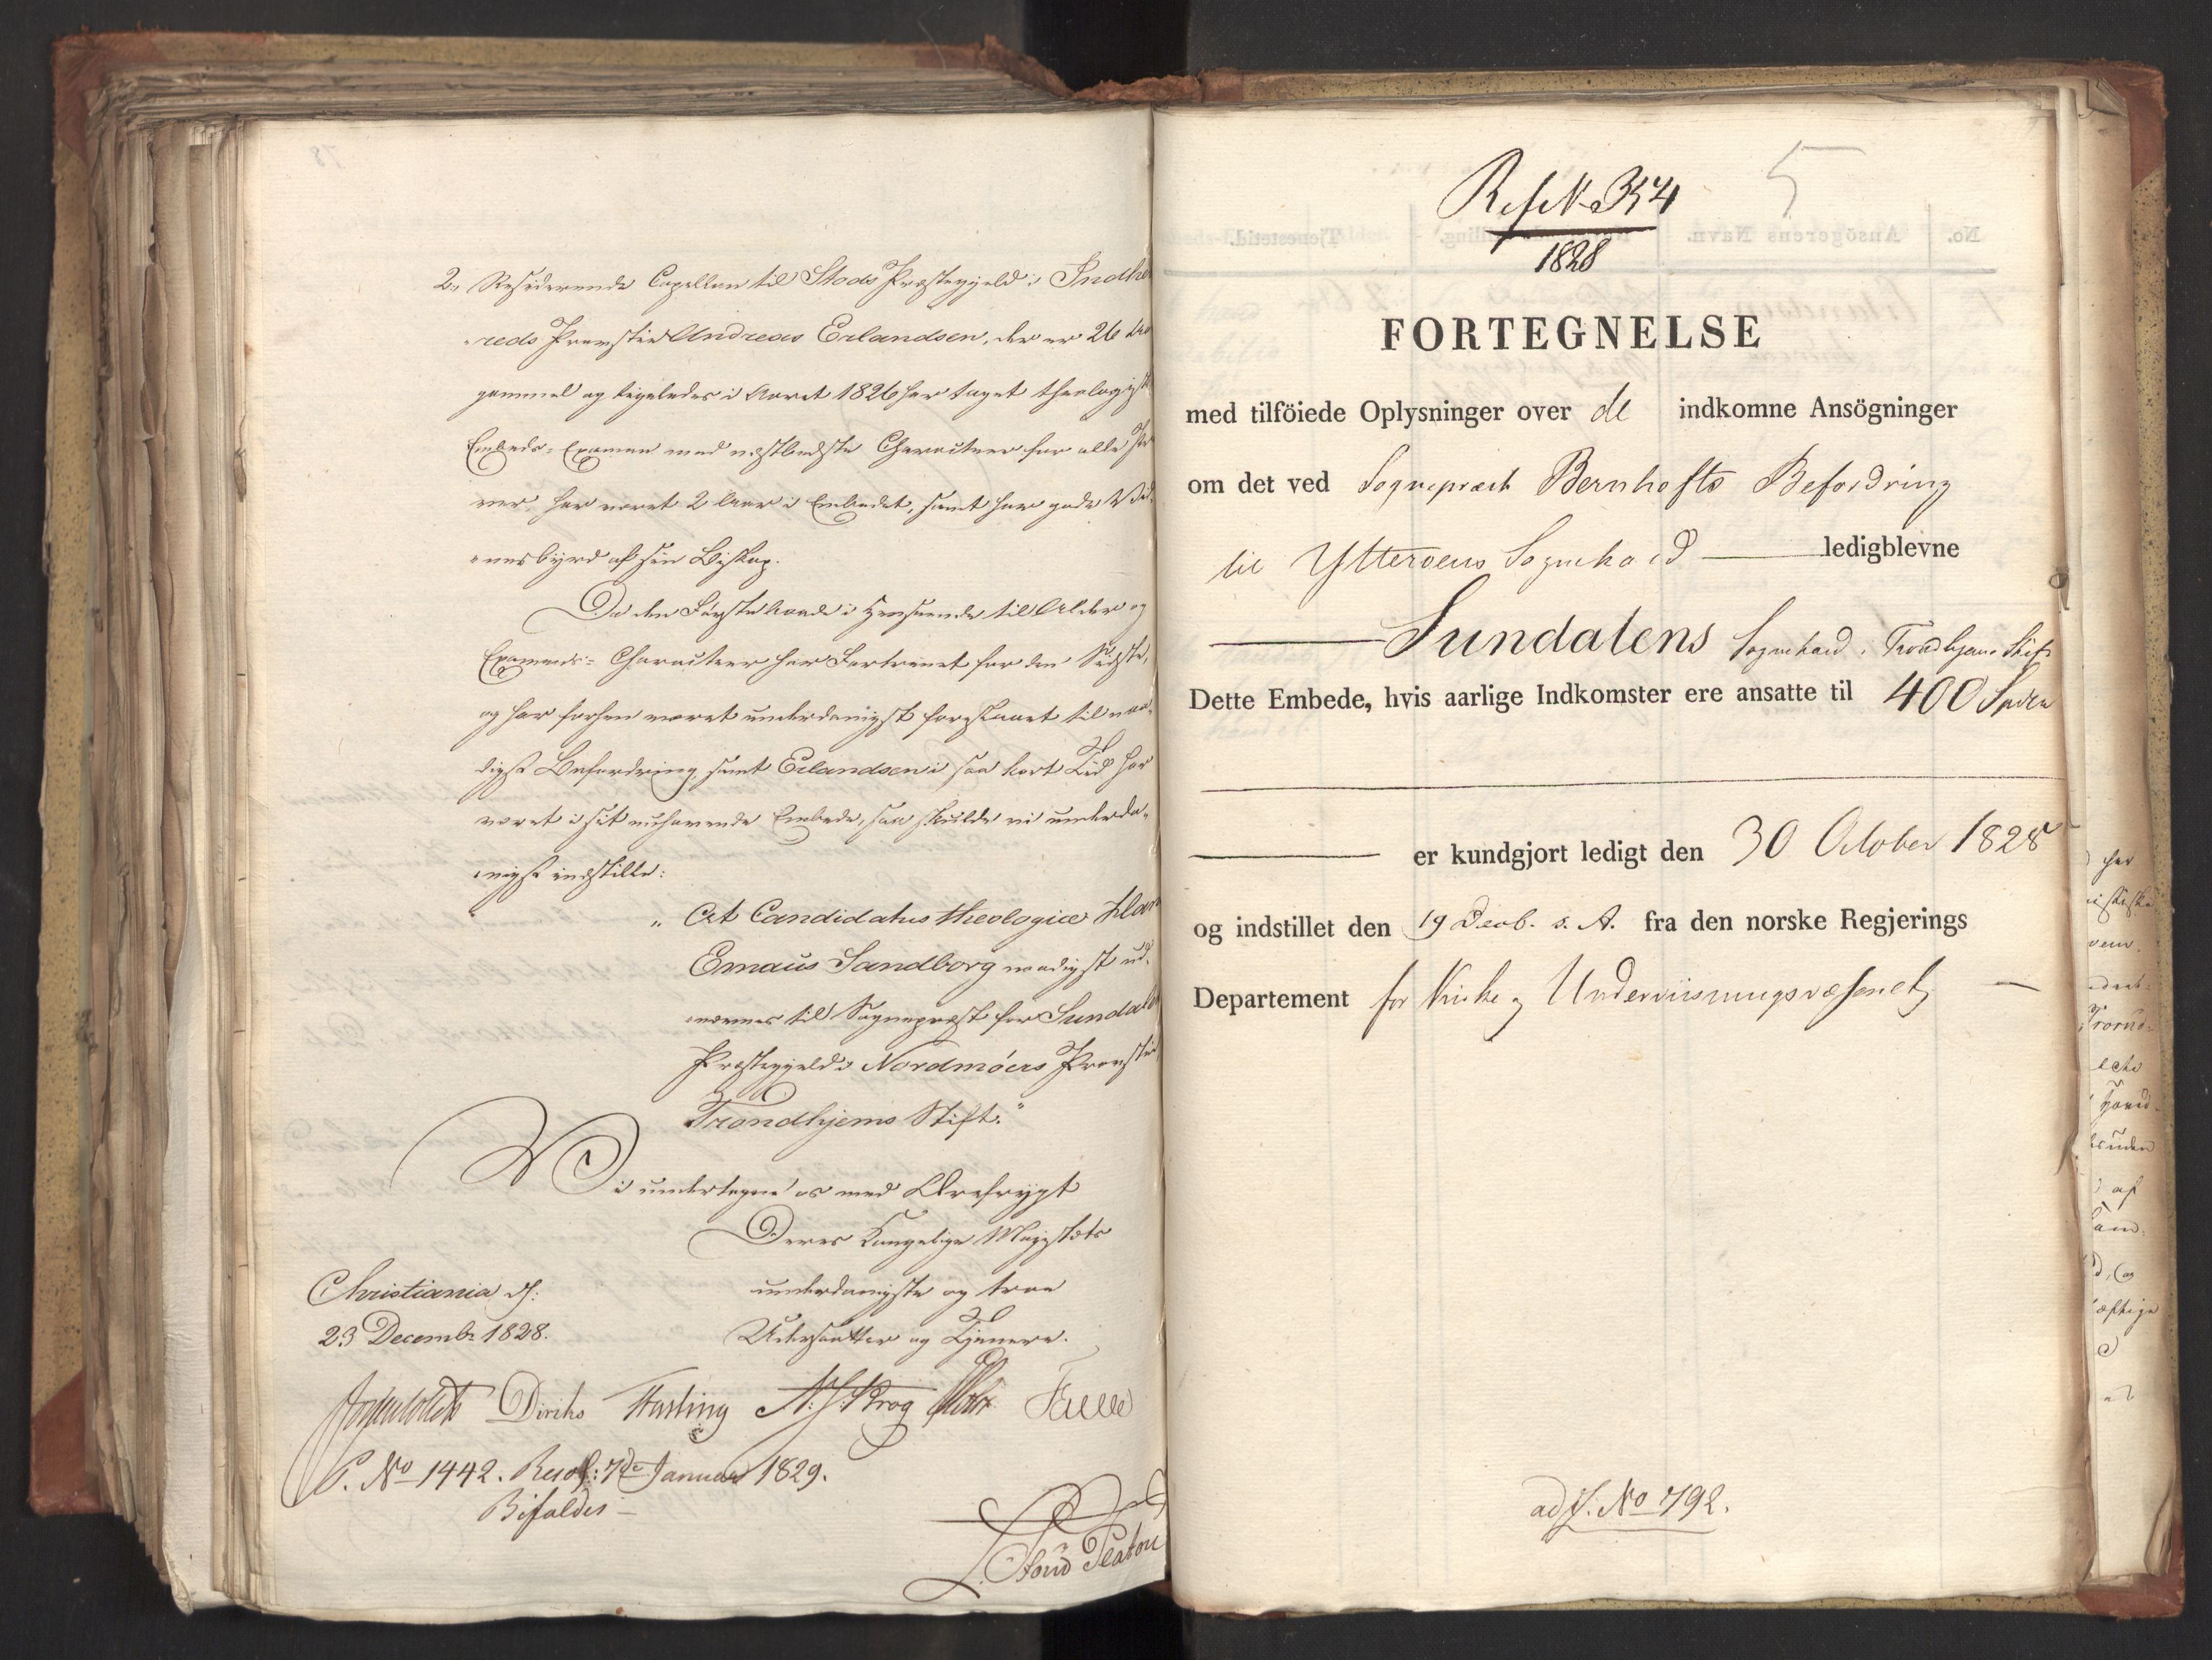 2, Residerende Capellan til Stods Præstegjeld i Indhe
reds Provstie Andreas Erlandsen, der er 26 Aar
gammel og ligeledes i Aaret 1826 har taget theologisk
Embeds-Examen med næstbedste Charakteer for alle Prø
ver, har været 2 Aar i Embedet, samt har gode Vid
nesbyrd af sin Biskop.
Da den Førstehaade i Henseende til Alder og
Examens-Charakteer har Fortrinet for den Sidste,
og har forhen været underdanigst foreslaaet til naa-
digst Befordring, samt Erlandsen i saa kort Tid har
været i sit nuhavende Embede, saa skulde vi underda-
nigst indstille:
„ At Candidatus theologiæ
Emaus Sandborg naadigst ud-
nævnes til Sognepræst for Sundal
Præstegjeld i Nordmöers Provstie
Trondhjems Stift."
Vi undertegne os med Ærefrygt
Deres Kongelige Majestæts
Christiania d:
underdanigste og troe
23 Decembr 1828.
Undersaatter og Tjenere.
Diriks N. J. Krog
P. No 1442. Resol: 7de Januar 1829.
Bifaldes
78
5
Ref No 354
1828
FORTEGNELSE
med tilföiede Oplysninger over de indkomne Ansögninger
om det ved Sognepræst Bernhofts Befordring
til Ytteröens Sognekald ledigblevne
Sundalens Sognekald i Trondhjems Stift
Dette Embede, hvis aarlige Indkomster ere ansatte til 400 Spdlr
er kundgjort ledigt den 30 October 1828
og indstillet den 19 Decb. s. A. fra den norske Regjerings
Departement for Kirke og Underviisningsvæsenet
ad J. No 792.